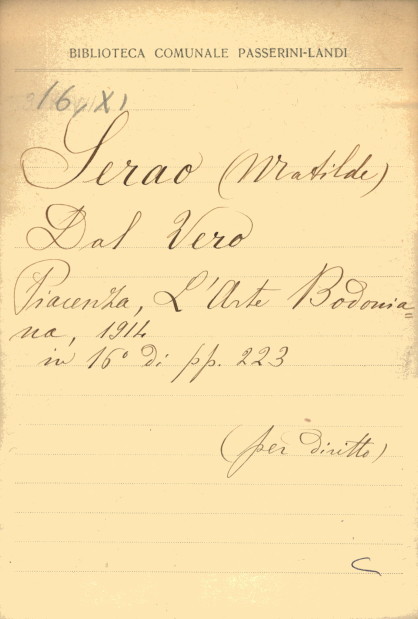 BIBLIOTECA COMUNALE PASSERINI-LANDI
16, XI
Serao (Matilde)
Dal Vero
Piacenza, L'Arte Bodonia=
na, 1914
in 16° di pp. 223
(per diritto)